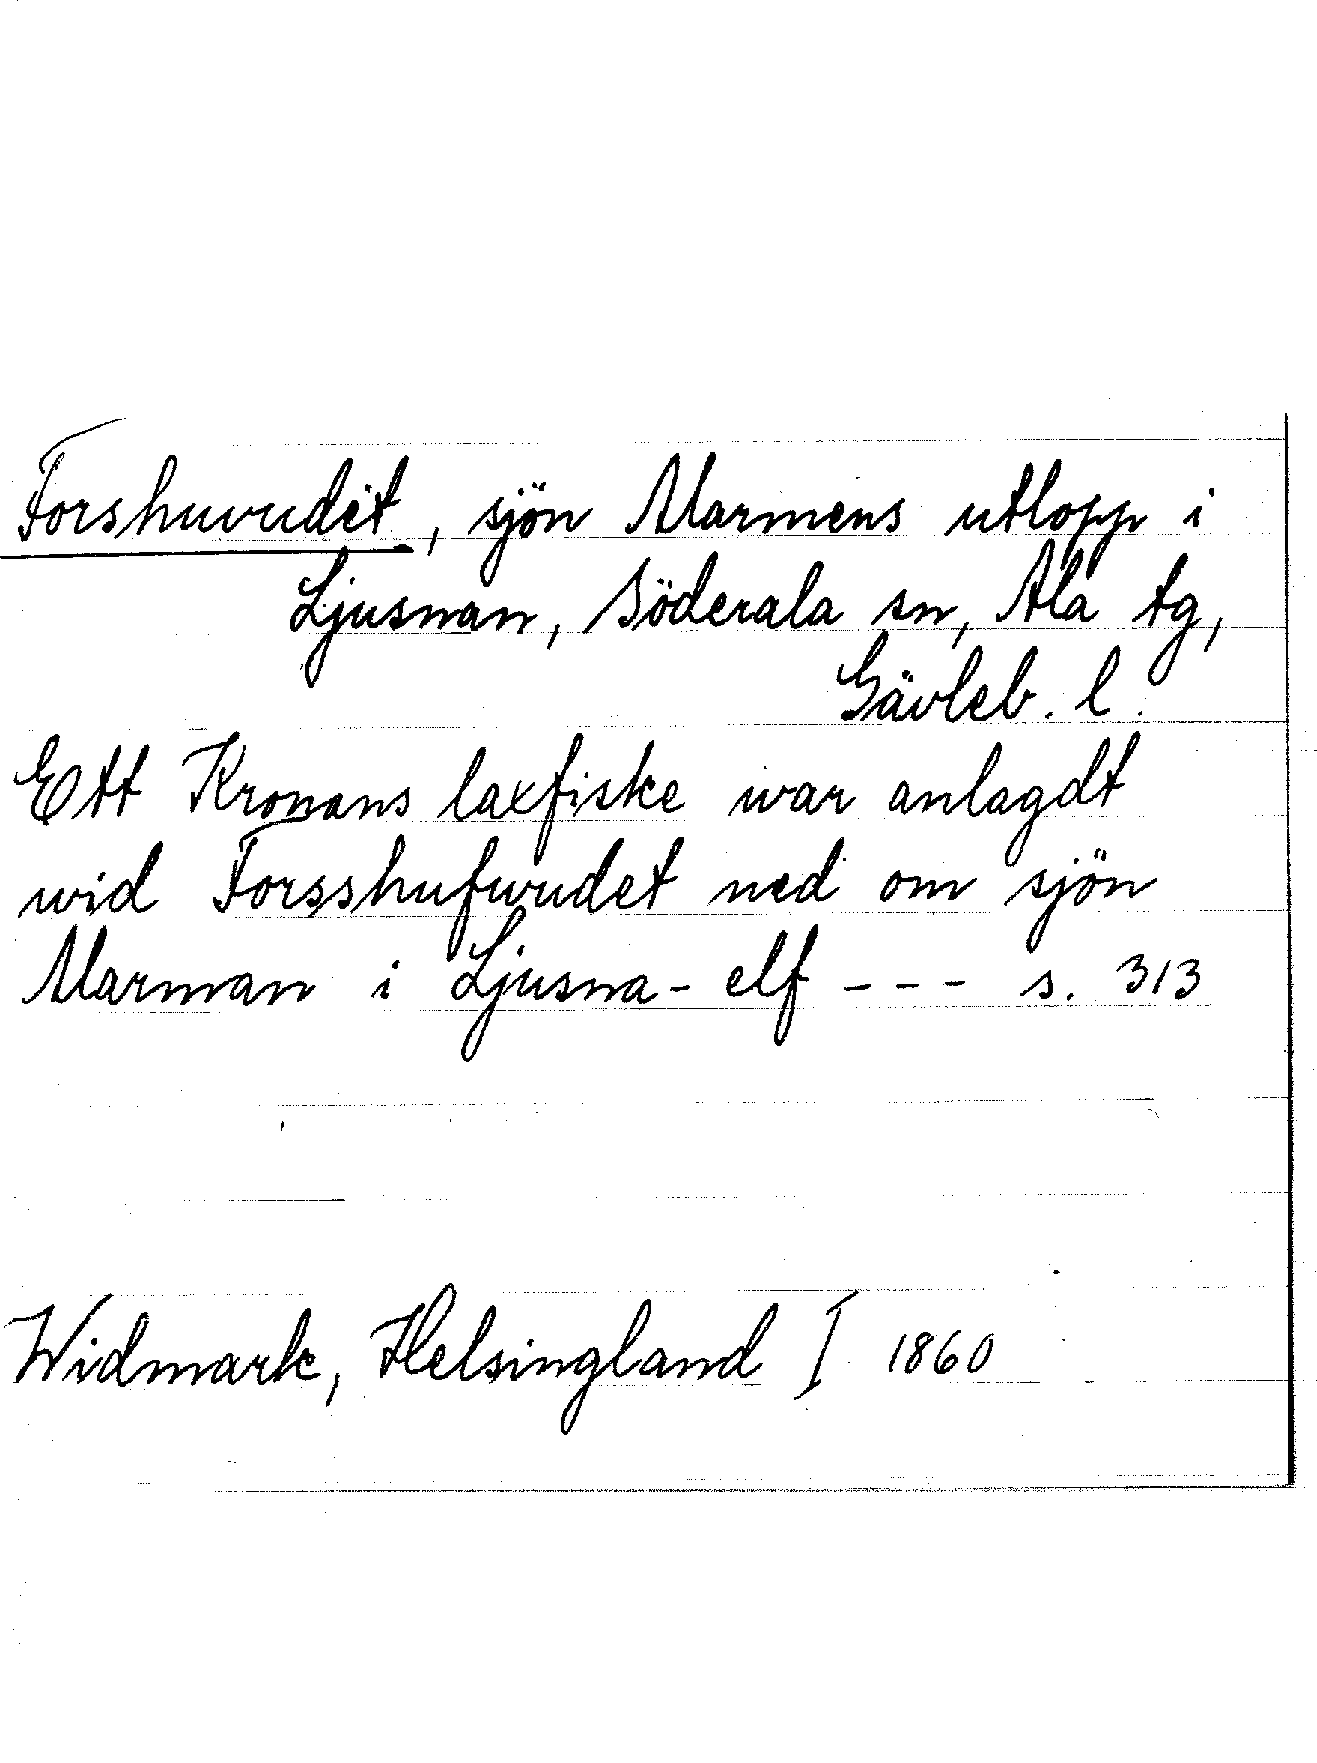 Forshuvudet, sjön Marmens utlopp i
Ljusnan, Söderala sn, Ala tg,
Gävleb. l.
Ett Kronans laxfiske war anlagdt
wid Forsshufwudet ned om sjön
Marman i Ljusna-elf --- s. 313
Widmark, Helsingland I 1860